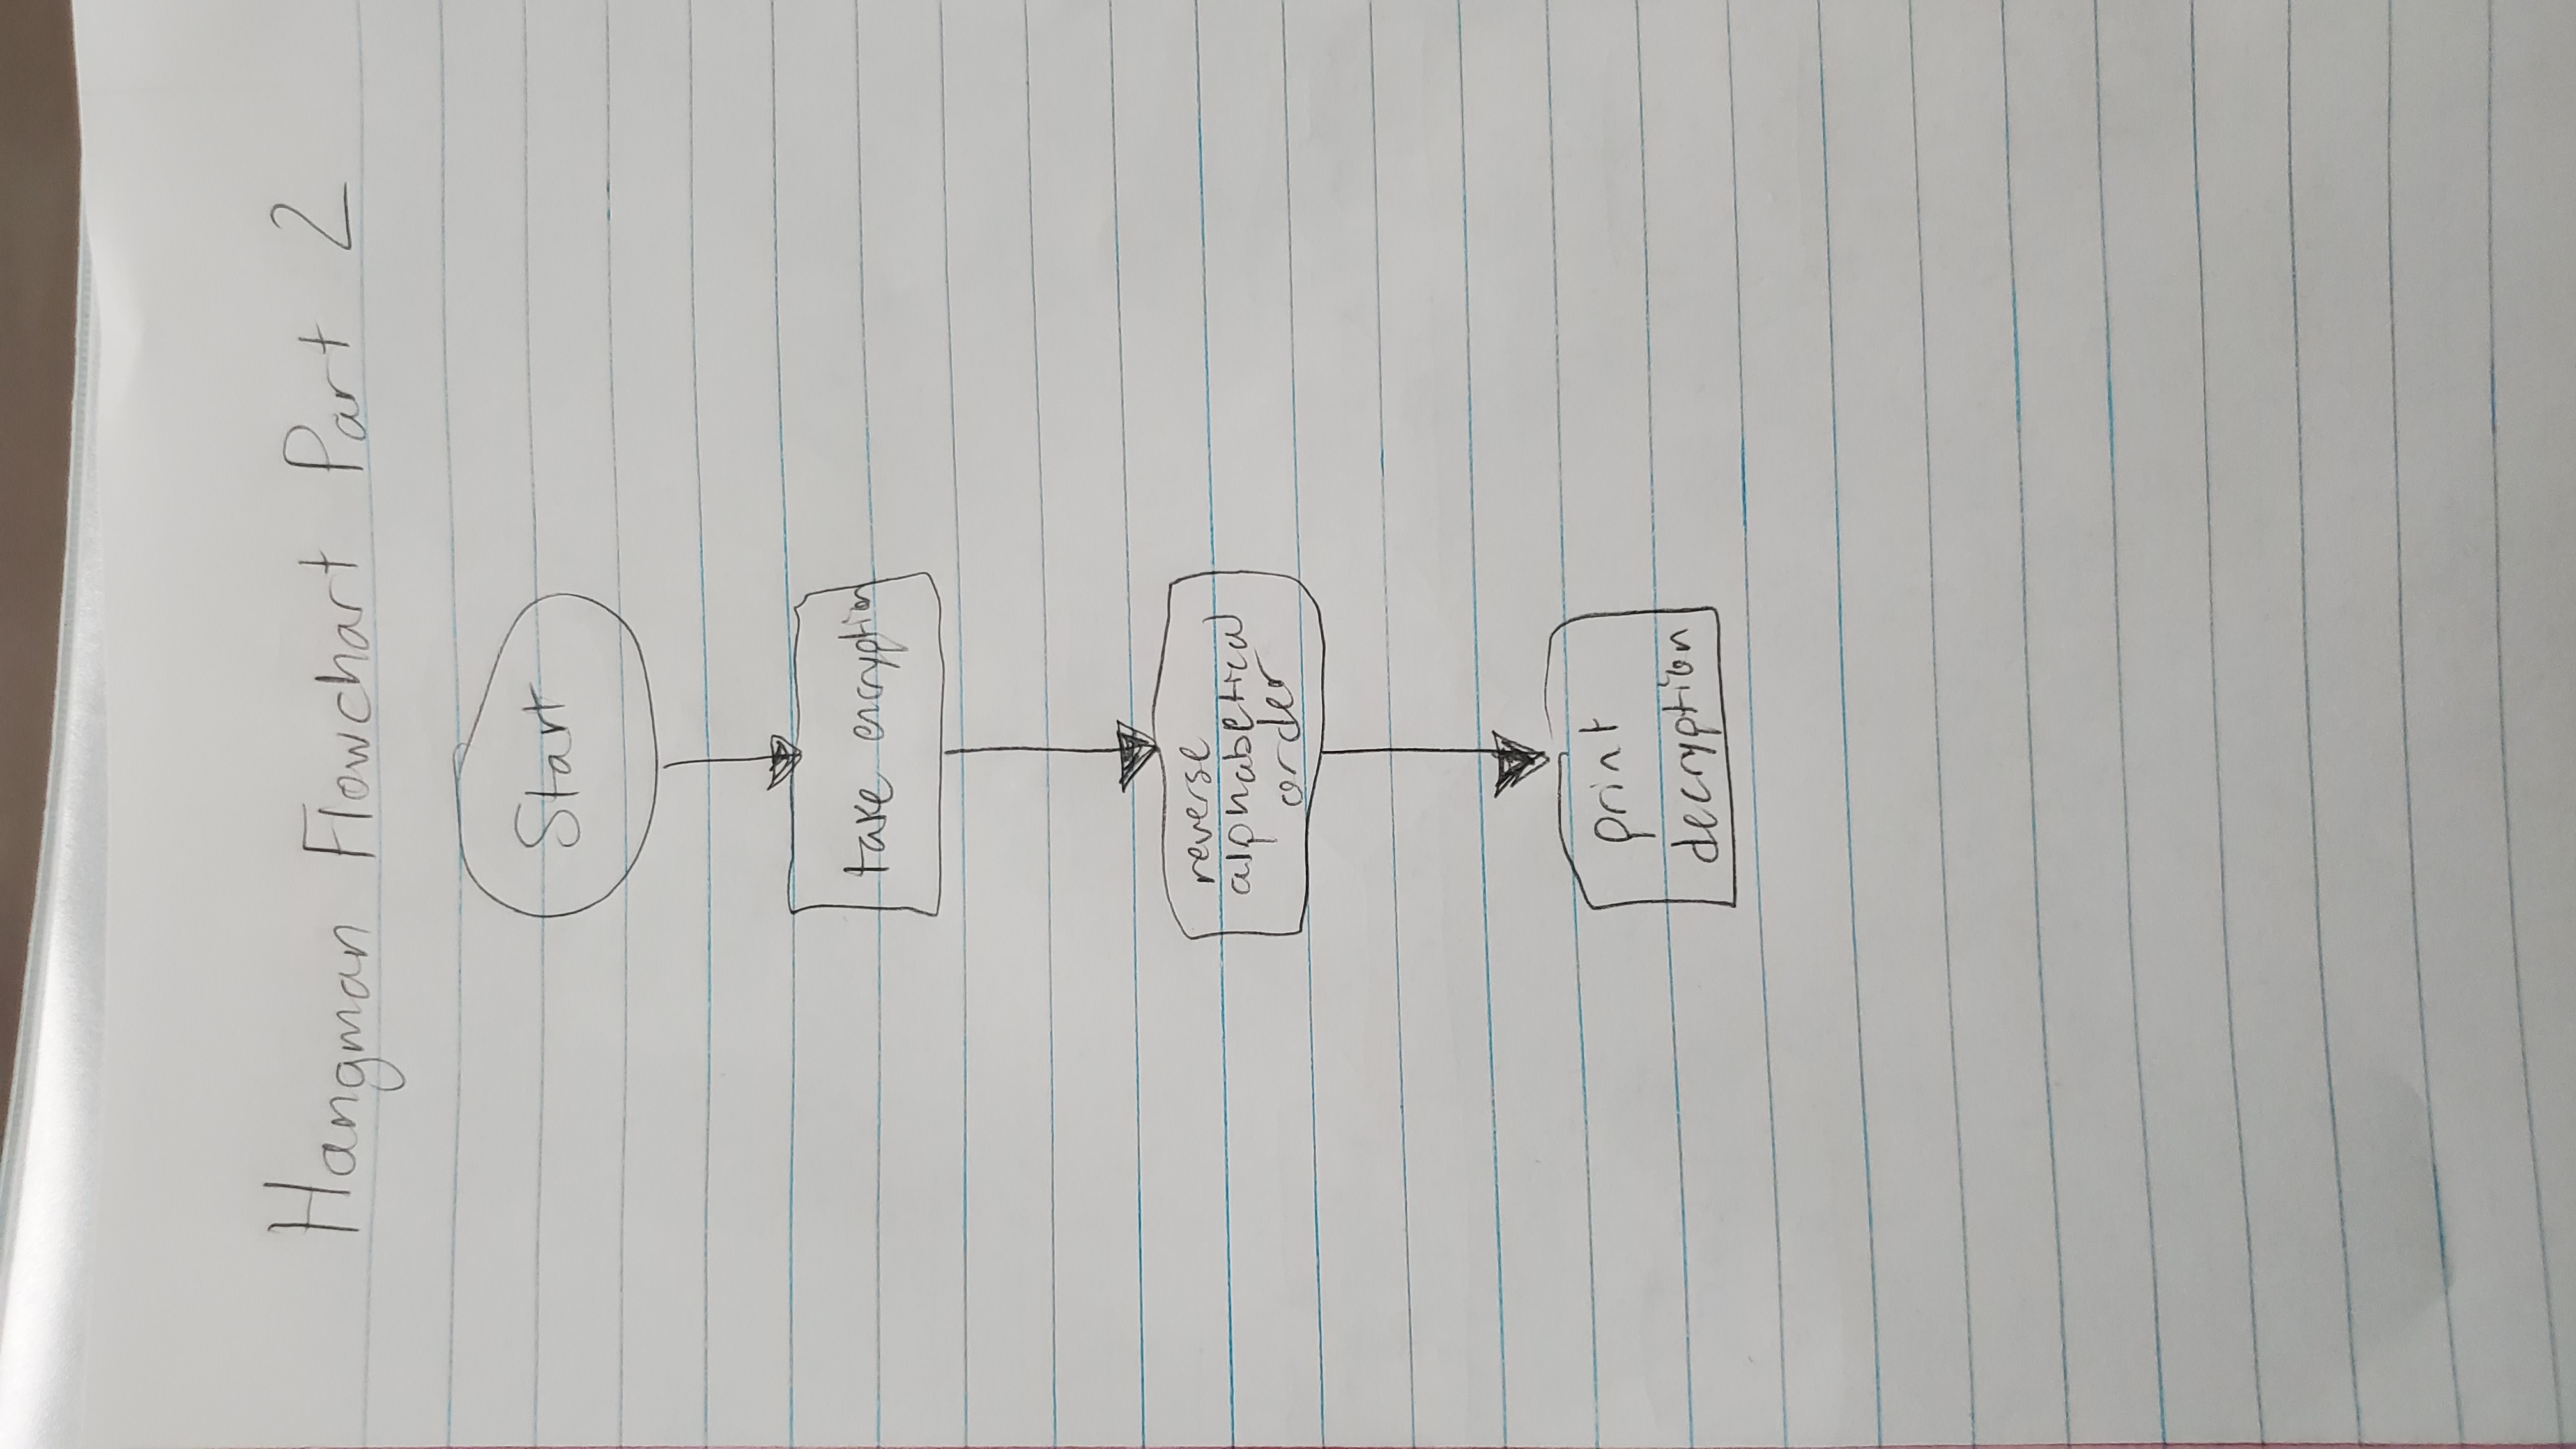 Hangman Flowchart Part 2
Start
take encryption
reverse
alphabetical
order
print
decryption